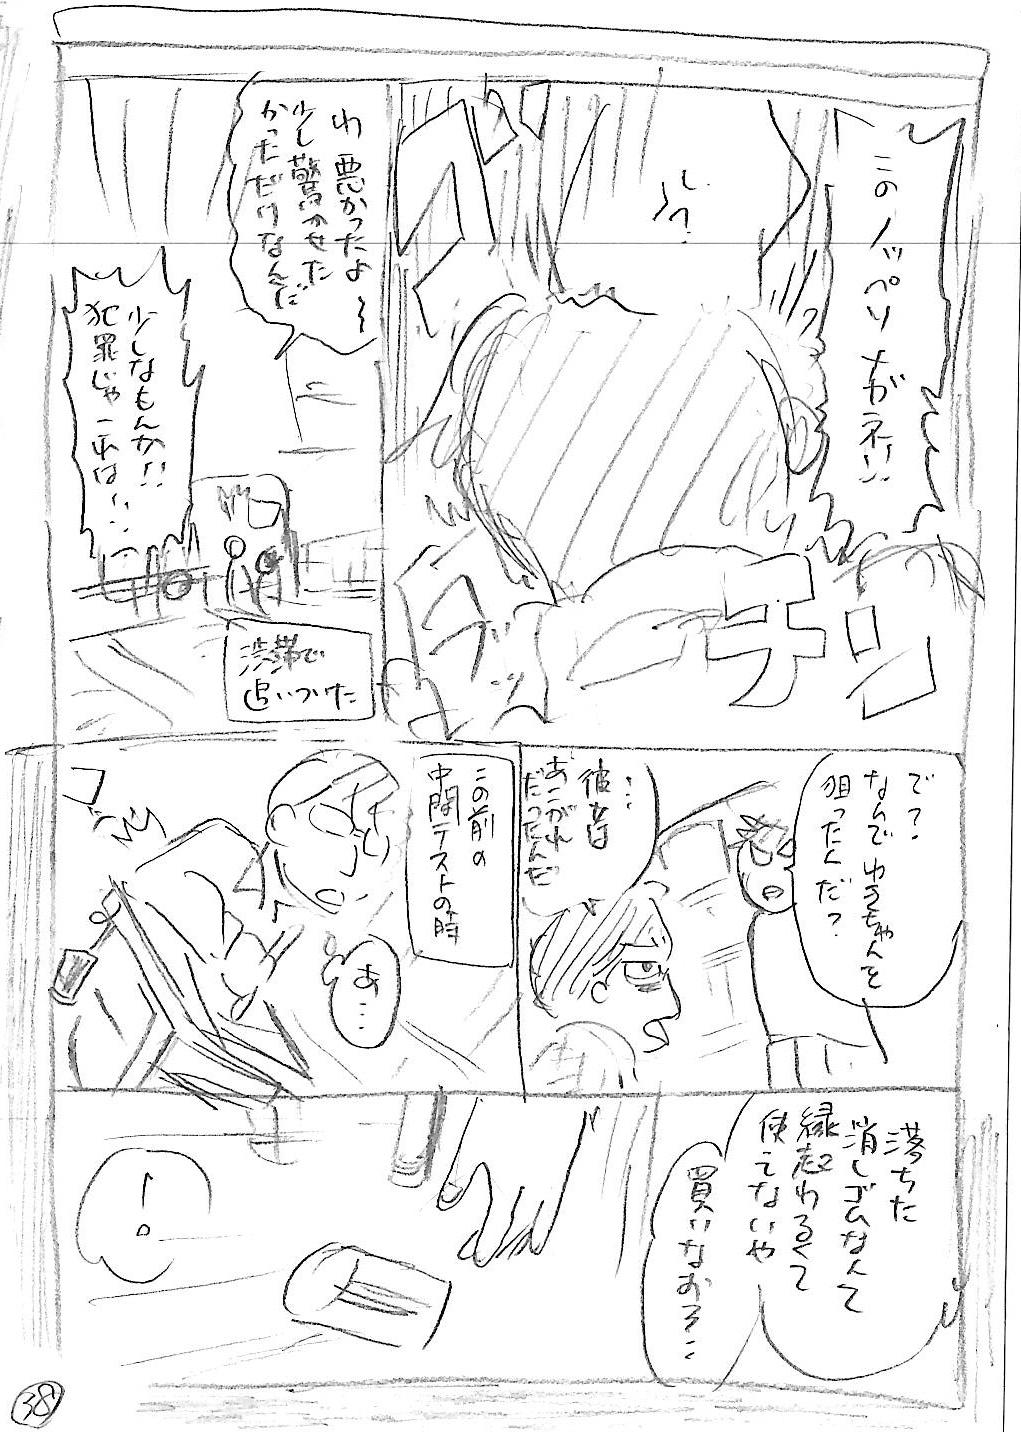 このノッペリメガネ!!
ガチロン
わ 悪かったよ〜
少し驚かせた
かっただけなんだ
少しなもんか!!
犯罪じゃこれは!!
渋滞で
追いついた
で?
なんでゆきちゃんを
狙ったんだ?
…
彼女は
あこがれ
だったんだ
この前の
中間テストの時
コ
あ…
落ちた
消しゴムなんて
縁起わるくて
使えないや
買いなおそ…
!
38